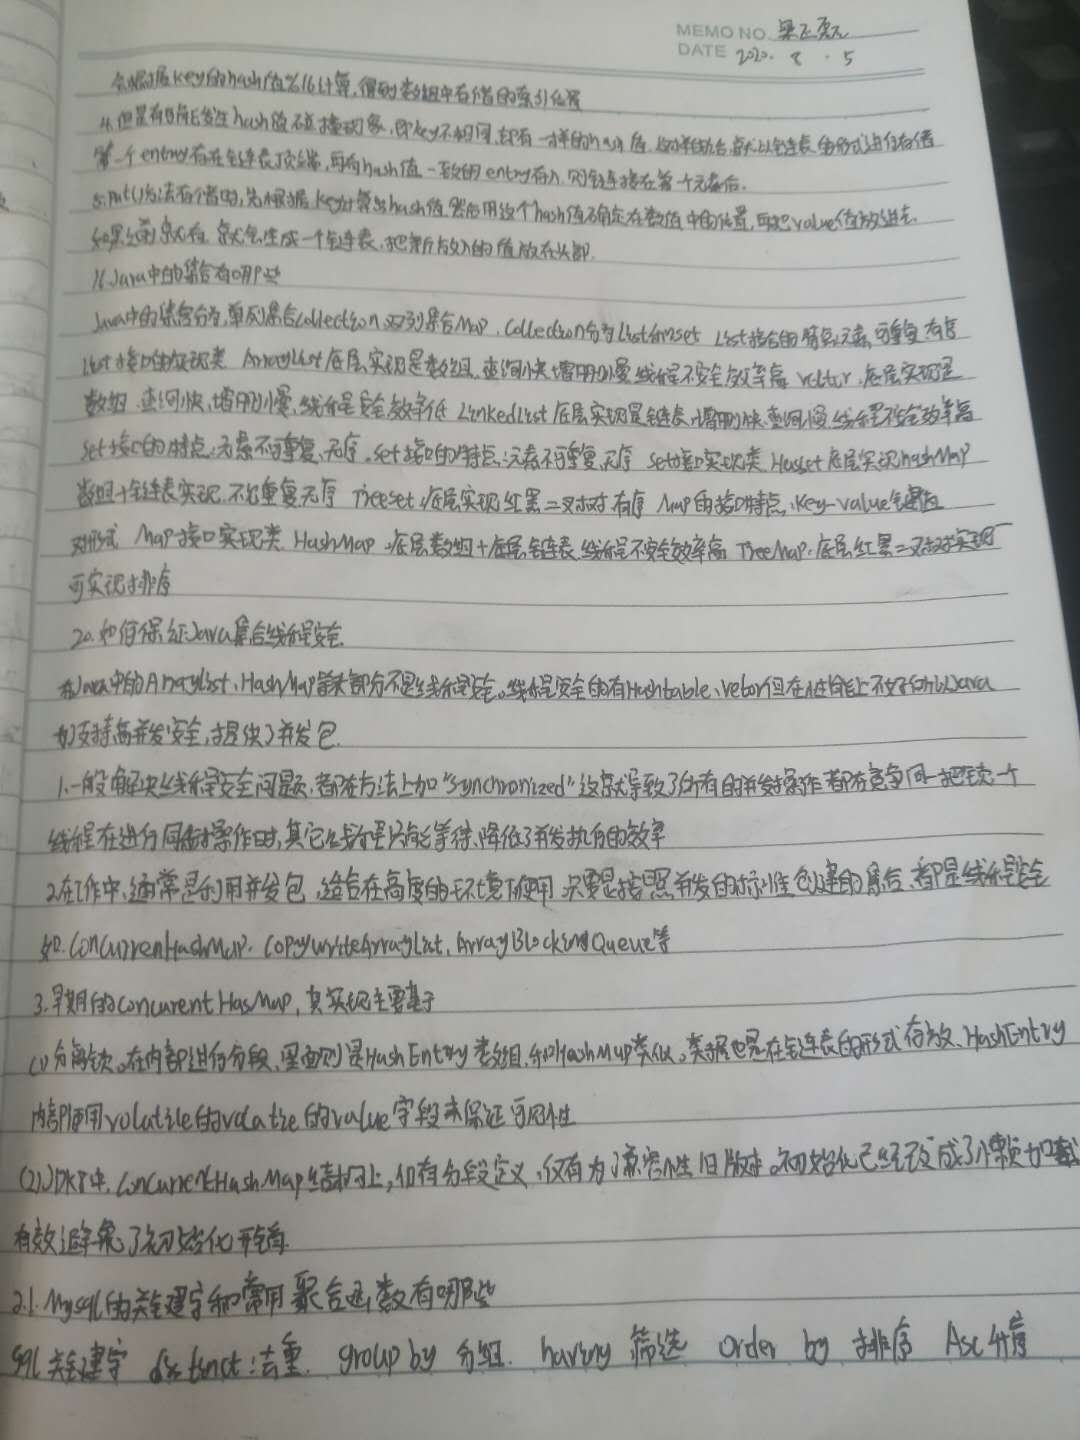 MEMO NO. 梁正
DATE 2020. 8 . 5
会根据key的hash值%16计算,得到数组中存储的索引位置
4.但是有可能发生hash值碰撞现象,即key不相同,却有一样的hash值,这时就会以链表的形式进行存储
第一个entry存在链表顶端,再有hash值一致的entry存入,则链接在第一个元素后.
5.Put()方法存储时,先根据key计算出hash值,然后用这个hash值确定在数值中的位置,再把value值放进去
如果之前就有,就会生成一个链表,把新放入的值放在头部.
16.Java中的集合有哪些
Java中的集合分为,单列集合Collection,双列集合Map. Collection分为List和set List接口的特点:元素可重复,有序
List接口的实现类 ArrayList底层实现是数组,查询快,增删慢,线程不安全,效率高 vector.底层实现是
数组.查询快,增删慢,线程安全,效率低 LinkedList底层实现是链表,增删快,查询慢,线程不安全效率高
set接口的特点:元素不可重复,无序.set接口的特点:元素不可重复,无序 set接口实现类 Hasset底层实现hashMap
数组+链表实现,不可重复无序 Treeset:底层实现红黑二叉树 有序 Map的接口特点:key-value键值
对形式 Map接口实现类 HashMap:底层数组+底层链表 线程不安全效率高 TreeMap:底层红黑二叉树实现
可实现排序
20.如何保证Java集合线程安全
在Java中的ArrayList、HashMap等大部分不是线程安全。线程安全的有Hashtable、vetor但在性能上不好所以Java
为了支持高并发安全,提供了并发包.
1.一般解决线程安全问题,都在方法上加"Synchronized"这就导致了所有的并发操作都在竞争同一把锁,一个
线程在进行同步操作时,其它线程只能等待,降低了并发执行的效率
2.在工作中,通常是利用并发包,适合在高度的环境下使用 只要是按照并发的标准创建的集合,都是线程安全
如.ConcurrenHashMap. CopyWriteArraylist, ArrayBlockingQueue等
3.早期的concurent HasMap,其实现主要基于
(1)分离锁。在内部进行分段,里面则是HashEntry数组,和HashMap类似。数据也是在链表的形式存放、HashEntry
内部使用volatile的volatie的value字段来保证可见性
(2)JDK8中.ConcurrentHashMap结构上,仍有分段定义,仅有为了兼容性旧版本.初始化已经改成了懒加载
有效避免了初始化开销
21.Mysql的关键字和常用聚合函数有哪些
sql关键字 distinct:去重. group by 分组. having 筛选 Order by 排序 Asc 升序